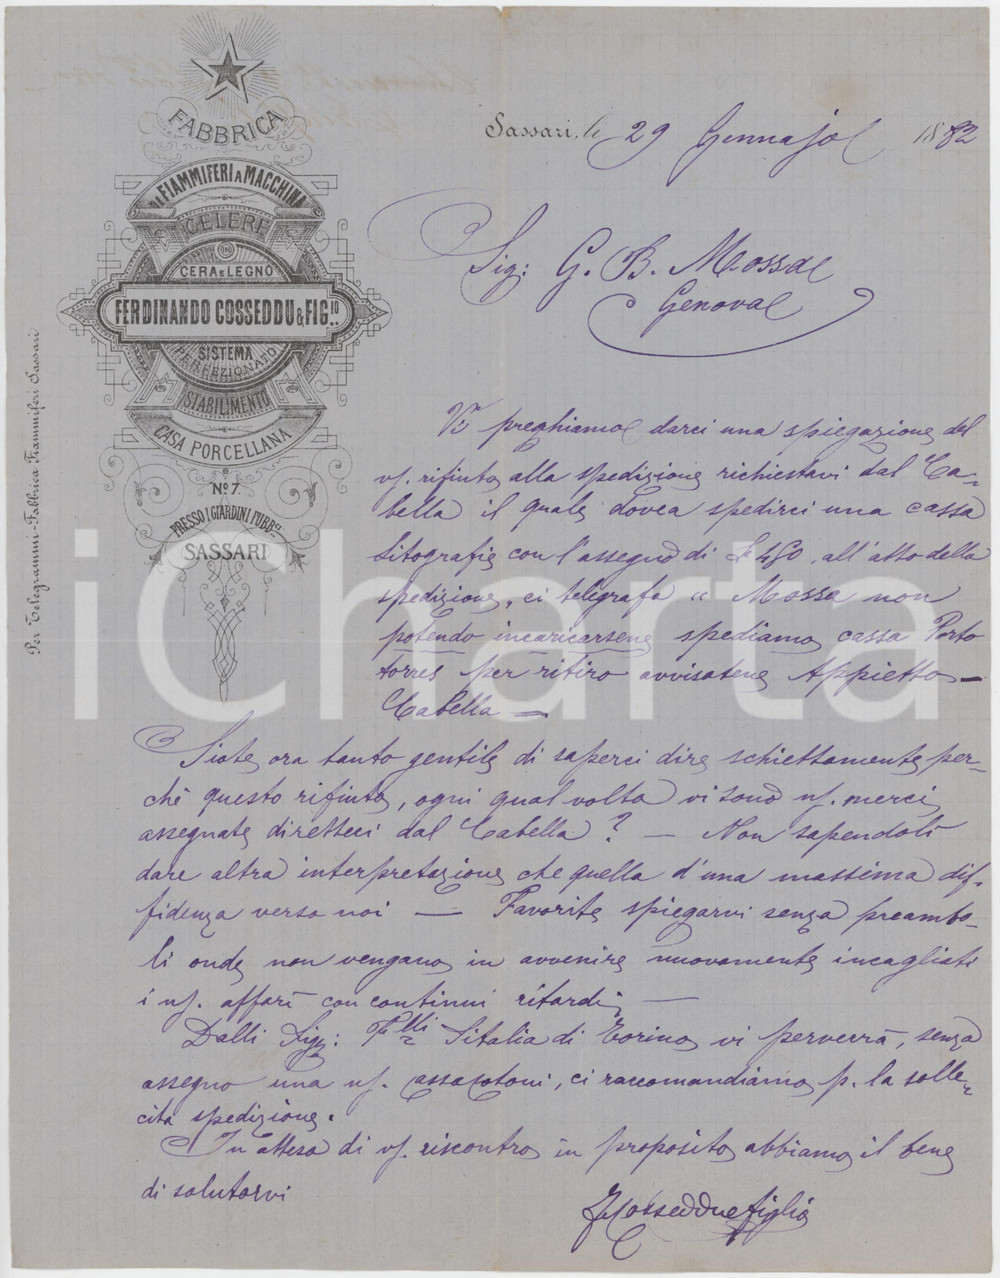 FABBRICA
DI FIAMMIFERI A MACCHINA
CELERE
CERA E LEGNO
FERDINANDO COSSEDDU & FIG.LIO
SISTEMA
PERFEZIONATO
STABILIMENTO
CASA PORCELLANA
No. 7.
PRESSO I GIARDINI PUBB.CI
SASSARI
Per Telegrammi-Fabbrica Fiammiferi Sassari
Sassari, le 29 Gennajo 1882
Sig: G. B. Mossa
Genova
Vi preghiamo darci una spiegazione del
vs. rifiuto alla spedizione richiestavi dal Ca-
bella il quale dovea spedirci una cassa
litografie con l'assegno di L. 450, all'atto della
spedizione, ci telegrafa "Mossa non
potendo incaricarsene spediamo cassa Porto
torres per ritiro avvisatene Appietto —
Cabella —
Siate ora tanto gentile di saperci dire schiettamente per-
chè questo rifiuto, ogni qual volta vi sono ns. merci
assegnate diretteci dal Cabella? — Non sapendoli
dare altra interpretazione che quella d'una massima dif-
fidenza verso noi — Favorite spiegarvi senza preambo-
li onde non vengano in avvenire nuovamente incagliati
i ns. affari con continui ritardi —
Dalli Sigg: F.lli Sitalia di Torino vi perverrà, senza
assegno una ns. cassa cotoni, ci raccomandiamo p. la solle-
cita spedizione.
In attesa di vs. riscontro in proposito abbiamo il bene
di salutarvi
F Cosseddu e figlio
iCharta